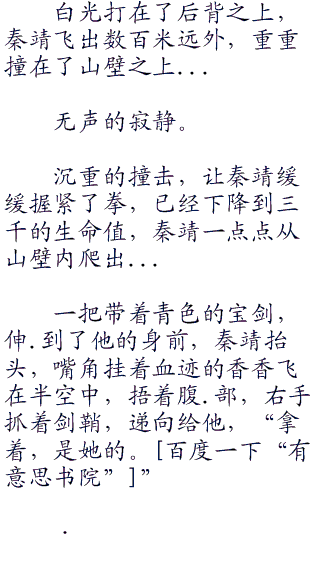 白光打在了后背之上，
秦靖飞出数百米远外，重重
撞在了山壁之上...
无声的寂静。
沉重的撞击，让秦靖缓
缓握紧了拳，已经下降到三
千的生命值，秦靖一点点从
山壁内爬出...
一把带着青色的宝剑，
伸.到了他的身前，秦靖抬
头，嘴角挂着血迹的香香飞
在半空中，捂着腹.部，右手
抓着剑鞘，递向给他，“拿
着，是她的。[百度一下“有
意思书院”]”
.